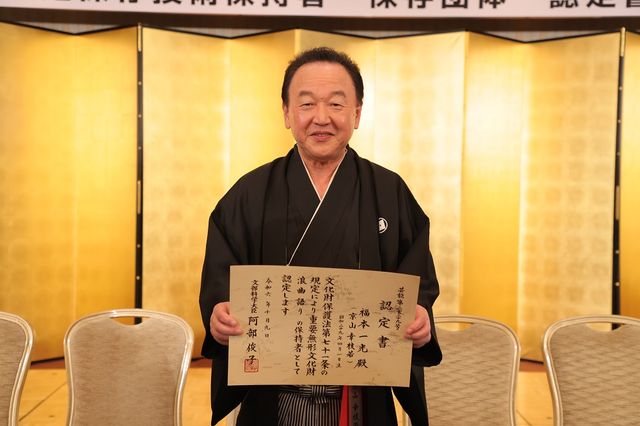 保存技術保持者 保存団体 認定書
認定書
福本一光殿
(京山幸枝若)
文化財保護法第七十一条の
規定により重要無形文化財
浪曲語りの保持者として
認定します
令和六年十月九日
文部科学大臣 阿部俊子